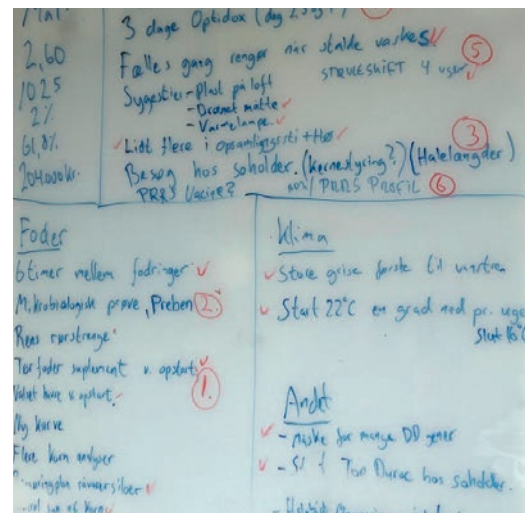 2,60
1025
2%
61,8%
204000 kr.
3 dage Optidox (dag 2
Fælles gang rengør når stalde vaskes 5
STRUESKIFT 4 uger
Sygestier - Plast på loft
- Drænet måtte
- Varmelampe.
Lidt flere i opsamlingssti + Hø
3
Besøg hos soholder. (Kernestyring?) (Halelængder)
PRRS Vaccine? PRRS PROFIL 6
Foder
6 timer mellem fodringer
Mikrobiologisk prøve, Preben 2.
Rens rørstrenge
Tørfoder suplement v. opstart
1.
Valset hvede v. opstart
Ny kurve
Flere korn analyser
Klima
Store grise første til venstre
Start 22°C en grad ned pr. uge
Slut 16°C
Andet
- Måske for mange DD gener
Duroc hos soholder.